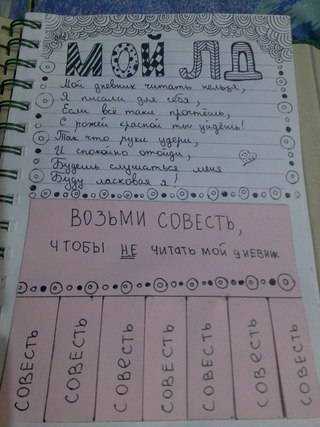 МОЙ ЛД
Мой дневник читать нельзя,
Я писала для себя,
Если всё таки прочтёшь,
С рожей красной ты уйдёшь!
Так что руки убери,
И спокойно отойди,
Будешь слушаться меня
Буду ласковая я!
ВОЗЬМИ СОВЕСТЬ,
ЧТОБЫ НЕ ЧИТАТЬ МОЙ ДНЕВНИК
СОВЕСТЬ
СОВЕСТЬ
СОВЕСТЬ
СОВЕСТЬ
СОВЕСТЬ
СОВЕСТЬ
СОВЕСТЬ